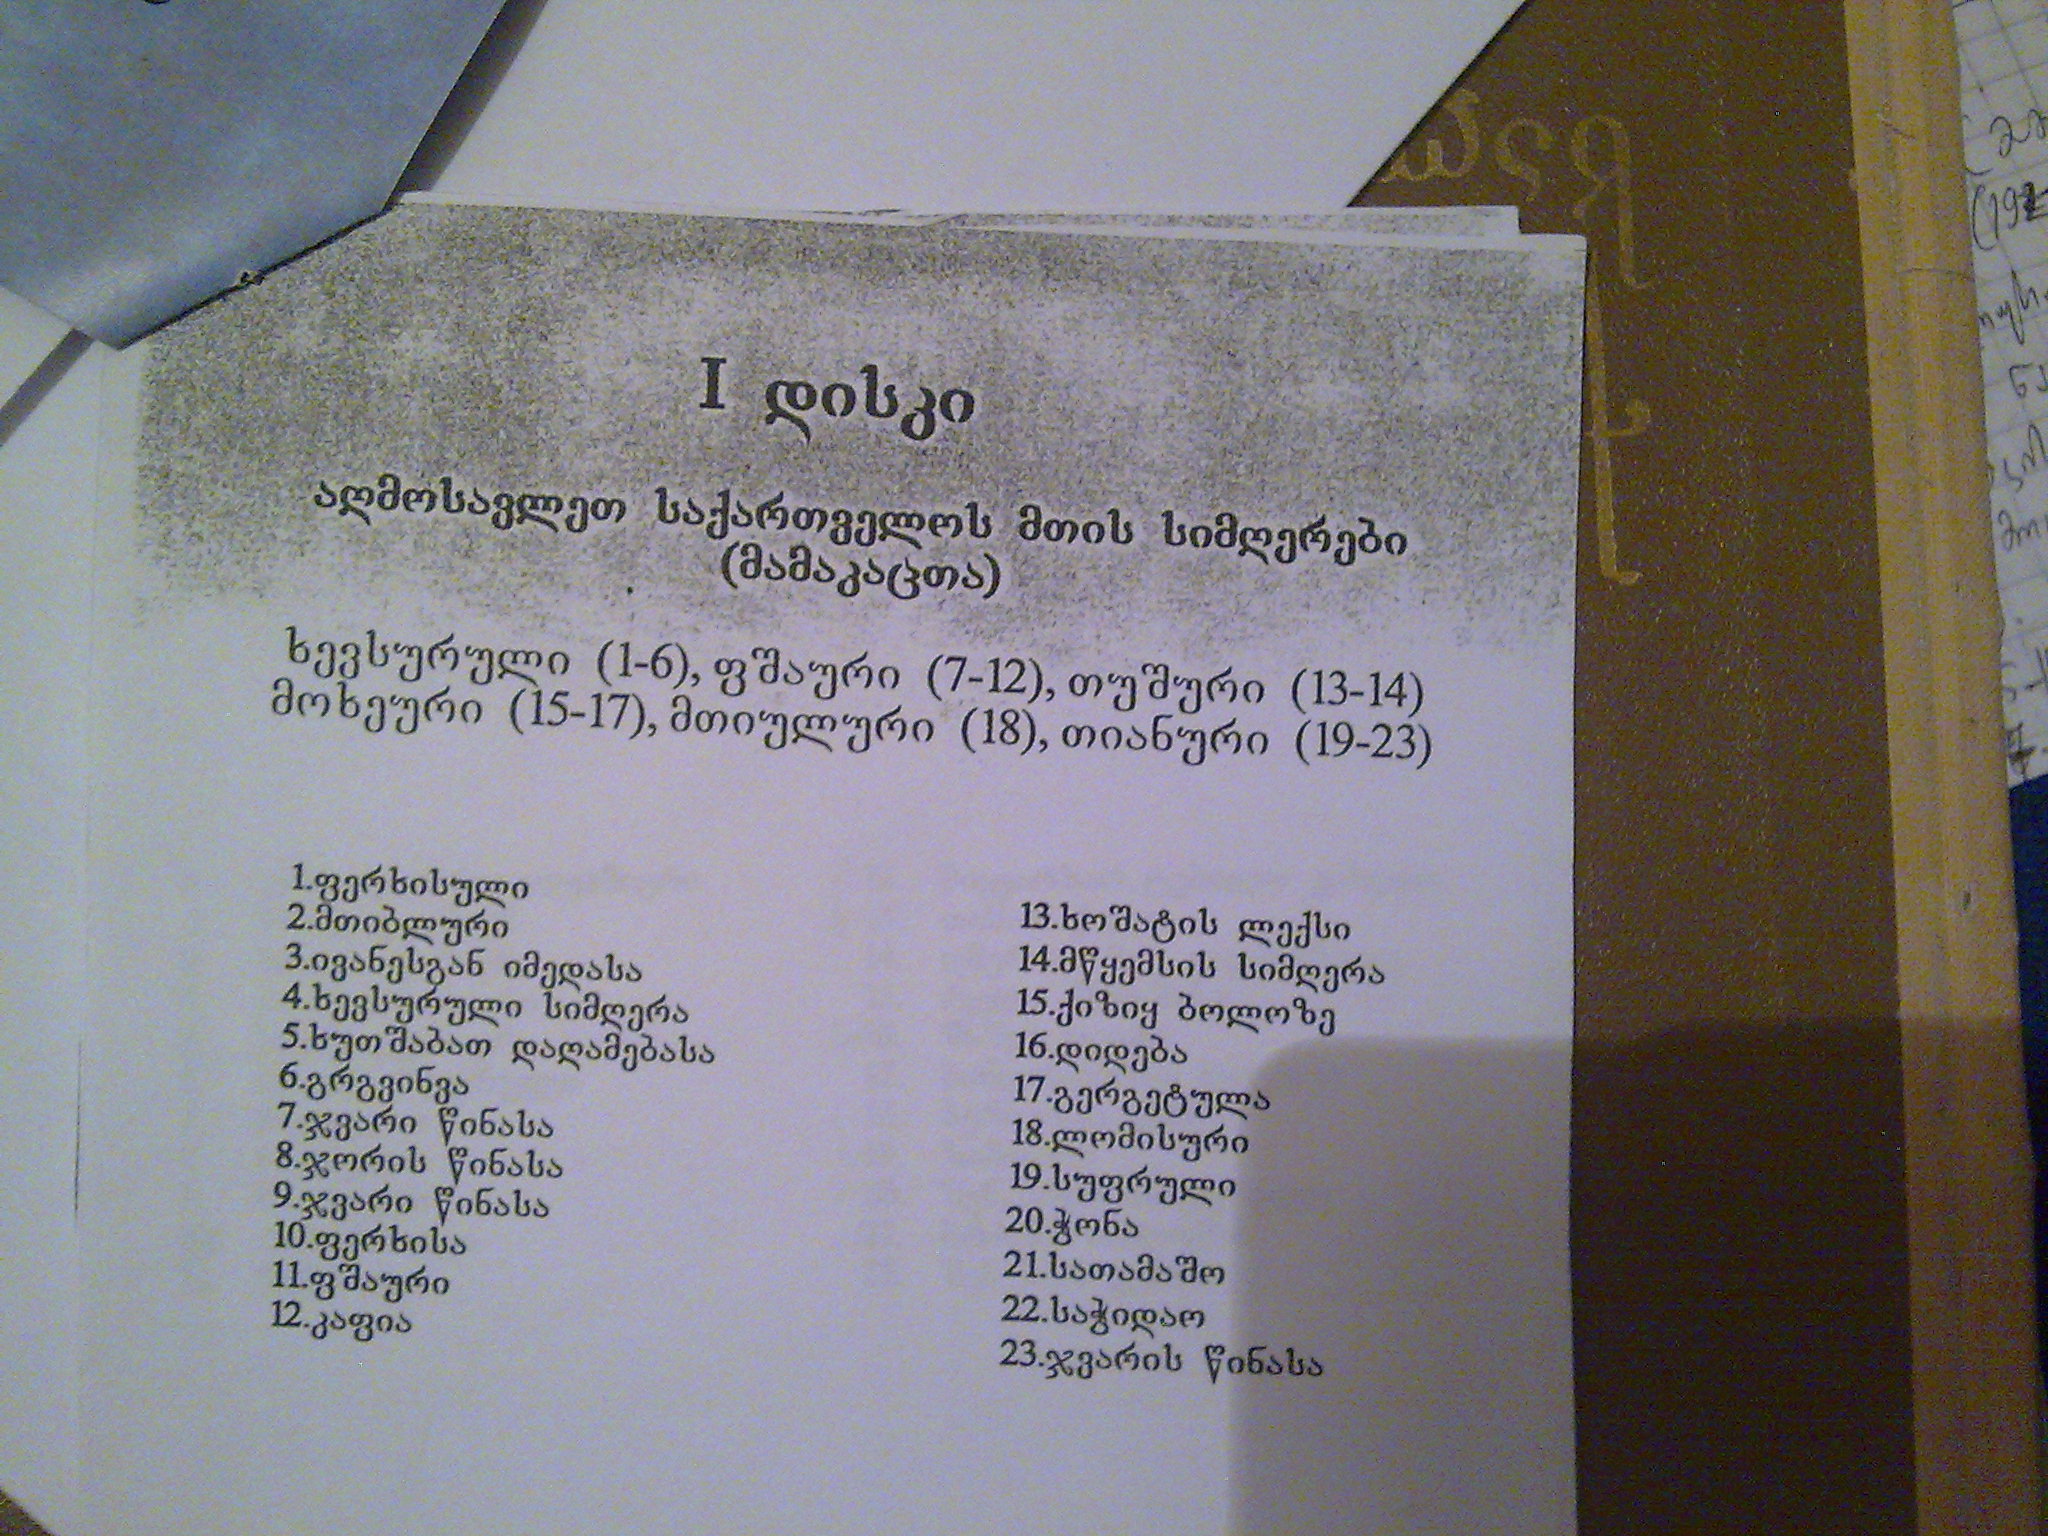 I დისკი
აღმოსავლეთ საქართველოს მთის სიმღერები
(მამაკაცთა)
ხევსურული (1-6), ფშაური (7-12), თუშური (13-14)
მოხეური (15-17), მთიულური (18), თიანური (19-23)
1.ფერხისული
2.მთიბლური
3.ივანესგან იმედასა
4.ხევსურული სიმღერა
5.ხუთშაბათ დაღამებასა
6.გრგვინვა
7.ჯვარი წინასა
8.ჯორის წინასა
9.ჯვარი წინასა
10.ფერხისა
11.ფშაური
12.კაფია
13.ხოშატის ლექსი
14.მწყემსის სიმღერა
15.ქიზიყ ბოლოზე
16.დიდება
17.გერგეტულა
18.ლომისური
19.სუფრული
20.ჭონა
21.სათამაშო
22.საჭიდაო
23.ჯვარის წინასა